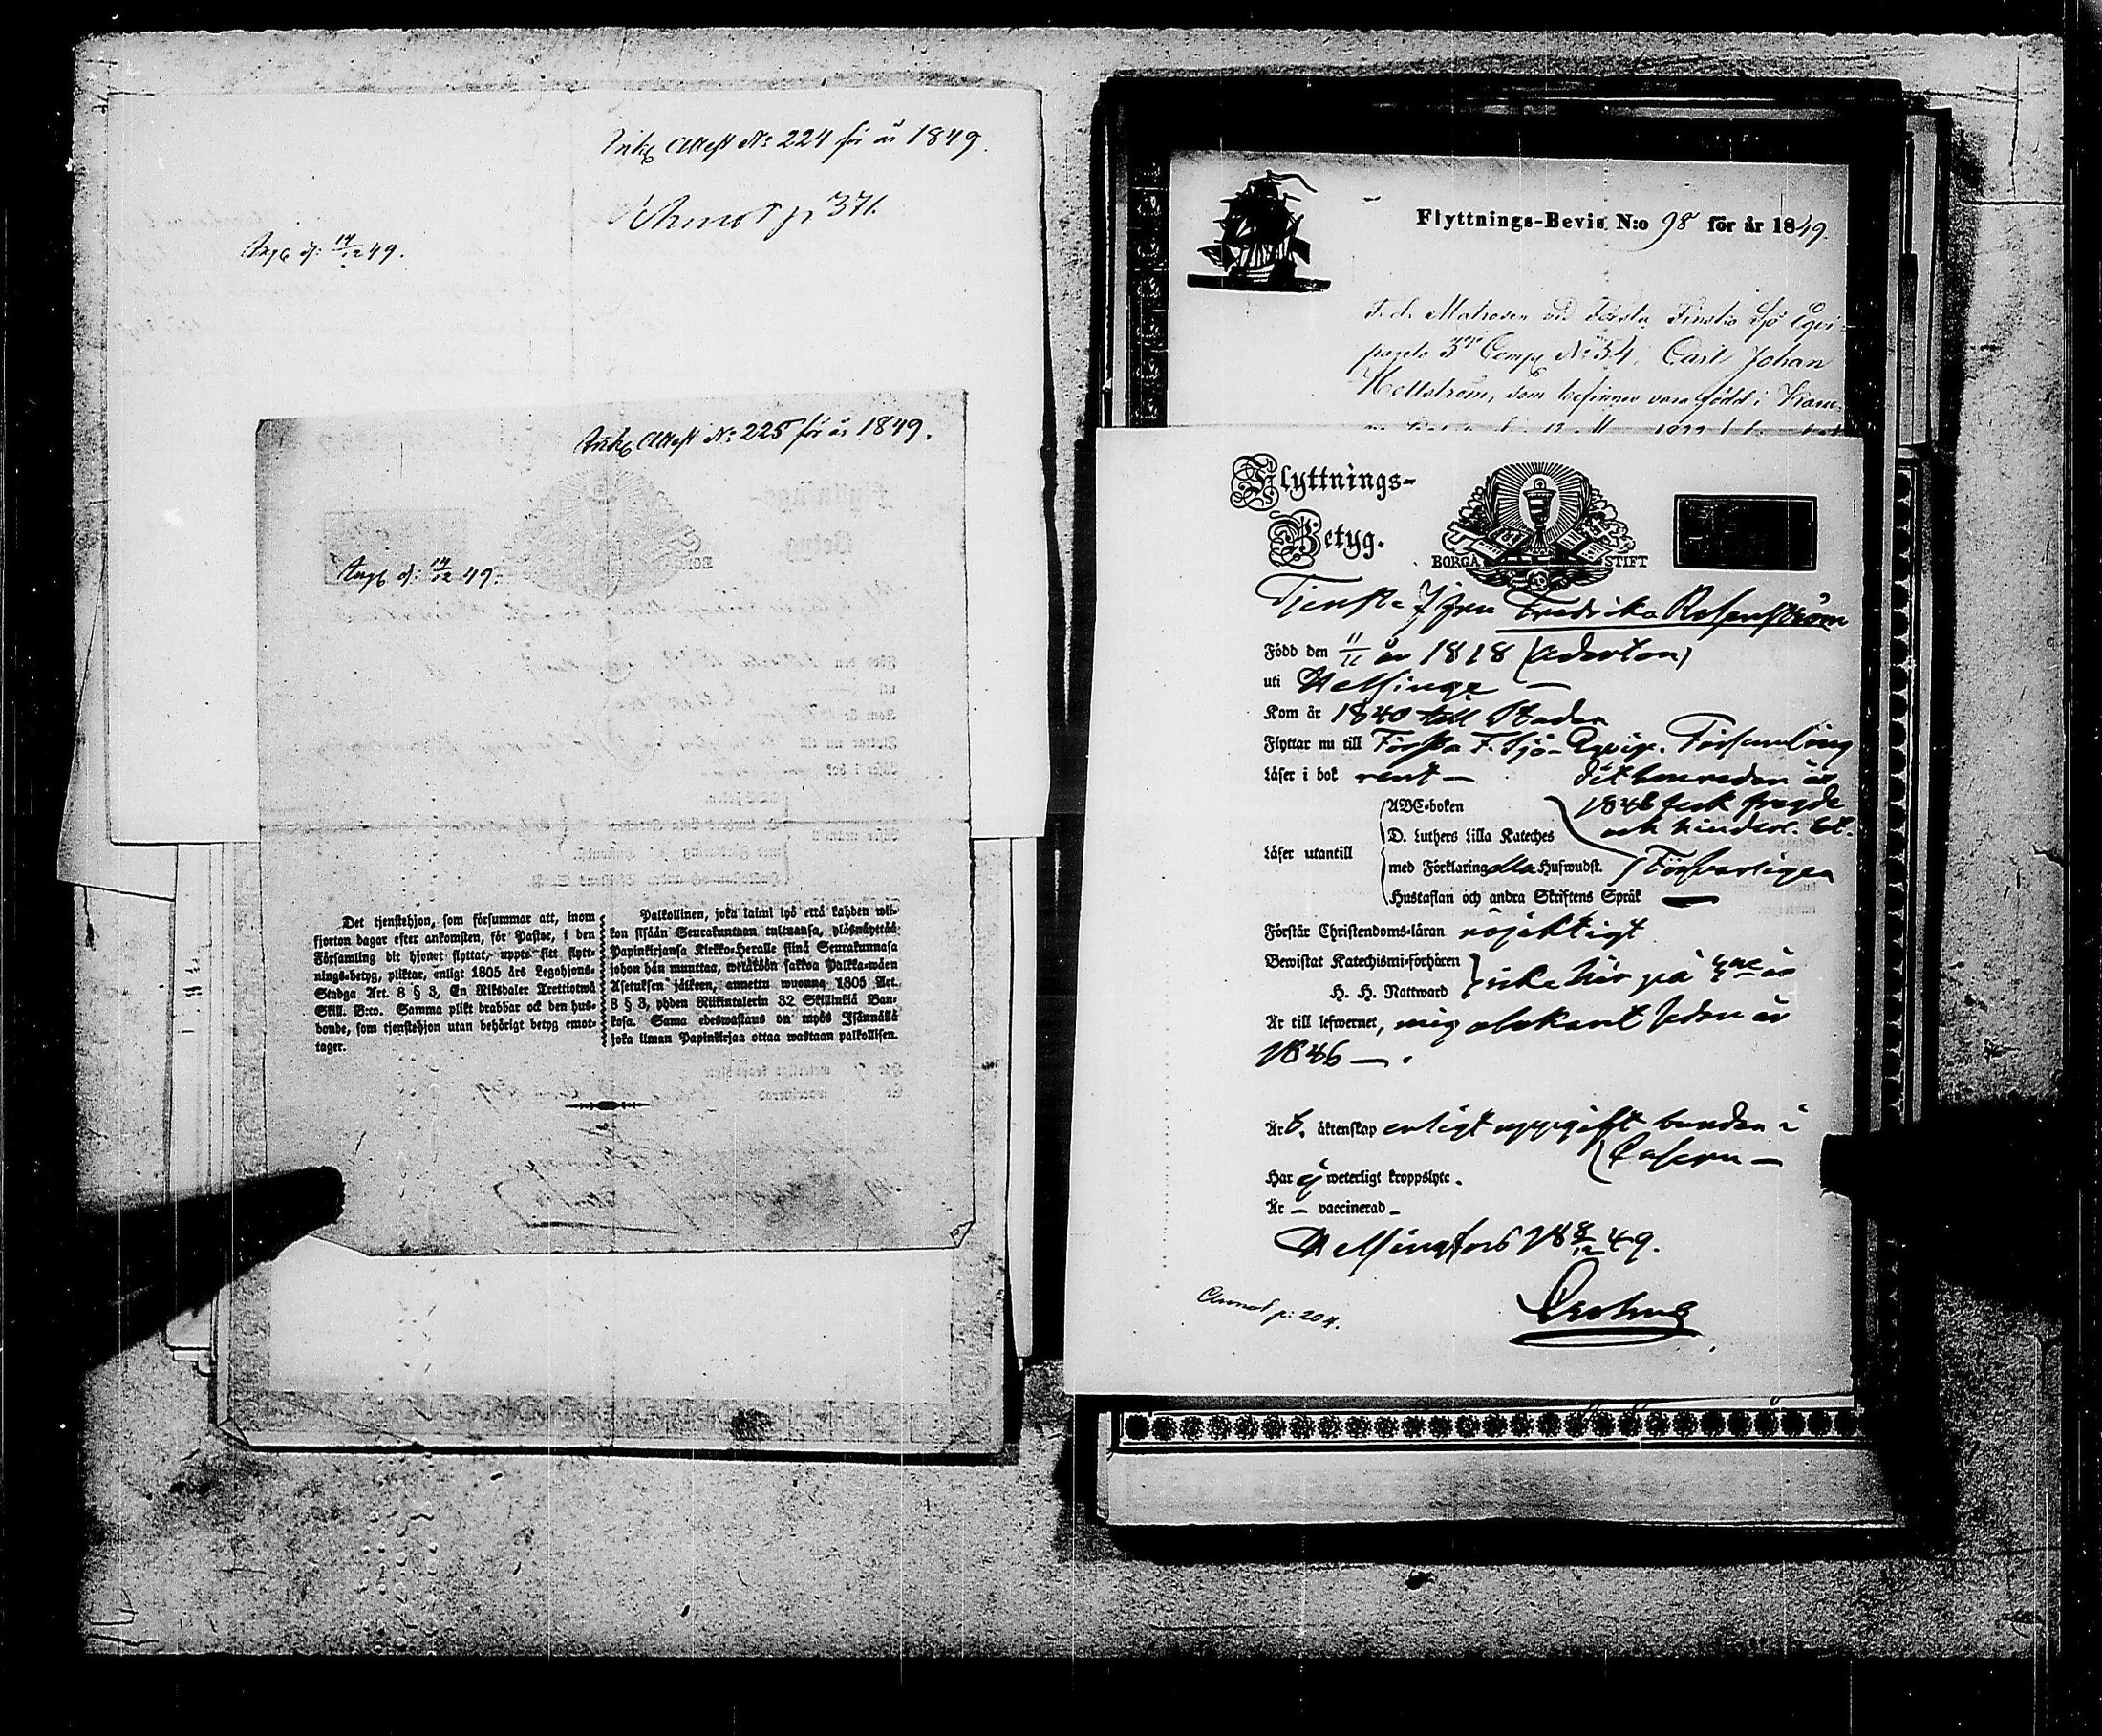 Ink Attest No 224 för år 1849.
Annot p 371.
Angf d: 14/12 49.
Ink Attest No 225 för år 1849.
Angf d: 14/12 49.
Det tjenstehjon, som försummar att, inom
fjorton dagar efter ankomsten, för Pastor, i den
Församling dit hjonet flyttat, uppte sitt flytt-
nings-betyg, pliktar, enligt 1805 års Legohjons-
Stadga Art. 8 § 3, En Riksdaler Trettiotwå
Skill. B:co. Samma plikt drabbar ock den hus-
bonde, som tjenstehjon utan behörigt betyg emot-
tager.
Palkollinen, joka laimi lyö että kahden wii-
kon sisään Seurakuntaan tultuansa, ylösnäyttää
Papinkirjansa Kirkko-Herralle siinä Seurakunnasa
johon hän muuttaa, wetäköön sakkoa Palkka-wäen
Asetuksen jälkeen, annettu wuonna 1805 Art.
8 § 3, yhden Riikintalerin 32 Skillinkiä Ban-
kosa. Sama edeswastaus on myös Isännällä
joka ilman Papinkirjaa ottaa wastaan palkollisen.
Flyttnings-Bevis N:o 98 för år 1849.
F. d. Matrosen vid Första Finska Sjö Equi-
pagets 3dje Comp No 54, Carl Johan
Hellström, som befinnes vara född i
Flyttnings-
Betyg.
BORGÅ STIFT
Tjenste Jfrun Fredrika Rosenström
Född den 11/11 år 1818 (Aderton)
uti Helsinge —
Kom år 1840 till Staden
Flyttar nu till Första F. Sjö-Equip. Församling
Läser i bok rent — dit hon redan år
ABC-boken 1846 fick frejde
D. Luthers Lilla Kateches och hinderl. bet.
Läser utantill
med Förklaring alla Hufwudst. Försvarligen
Hustaflan och andra Skriftens Språk —
Förstår Christendoms-läran nöjaktigt
Bewistat Katechismi-förhören
H. H. Nattward icke här på 4ne år
Är till lefwernet, mig obekant sedan år
1846 — .
Är t. äktenskap enligt uppgift bunden i
Casern —
Har ej weterligt kroppslyte.
Är — vaccinerad —
Helsingfors 18 8/12 49.
Annot p: 204.